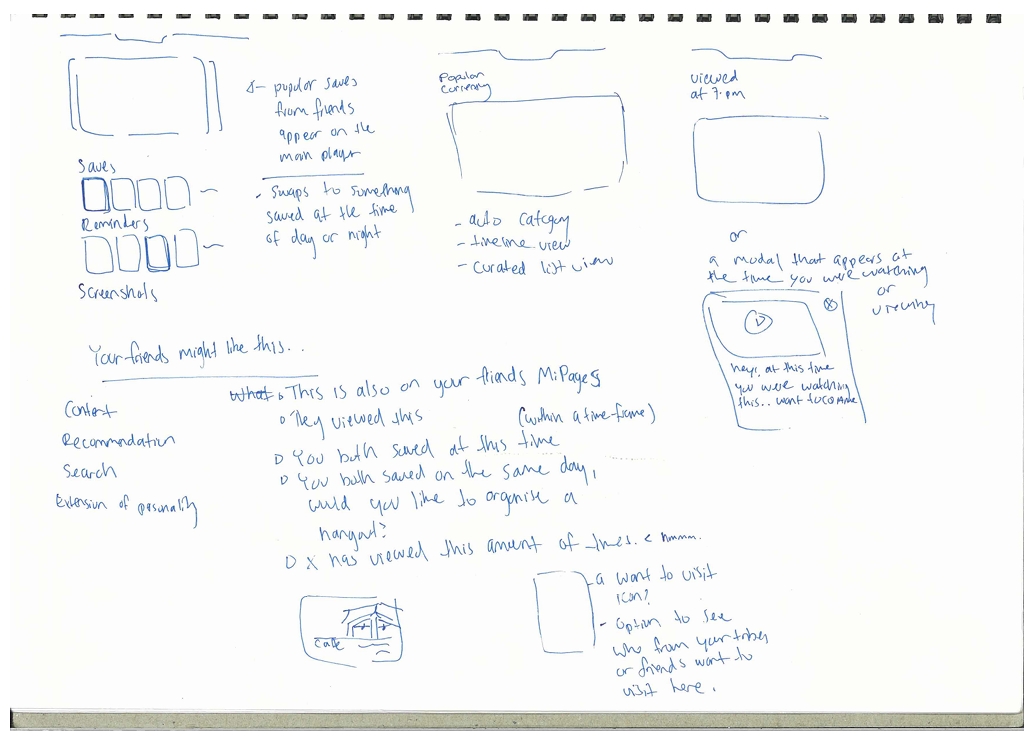 ← popular saves
from friends
appear on the
main player
- Swaps to something
saved at the time
of day or night
Saves
Reminders
Screenshots
Popular
Currency
- auto category
- timeline view
- curated list view
viewed
at 7. pm
or
a modal that appears at
the time you were watching
or
viewing
heys, at this time
you were watching
this.. want to
Your friends might like this...
Content
Recommendation
Search
Extension of personality
What This is also on your friends MiPages
They viewed this
(within a time-frame)
You both saved at this time
You both saved on the same day,
would you like to organise a
hangout?
X has viewed this amount of times. < hmmm.
Cafe
- a want to visit
icon?
- option to see
who from your tribes
or friends want to
visit here.